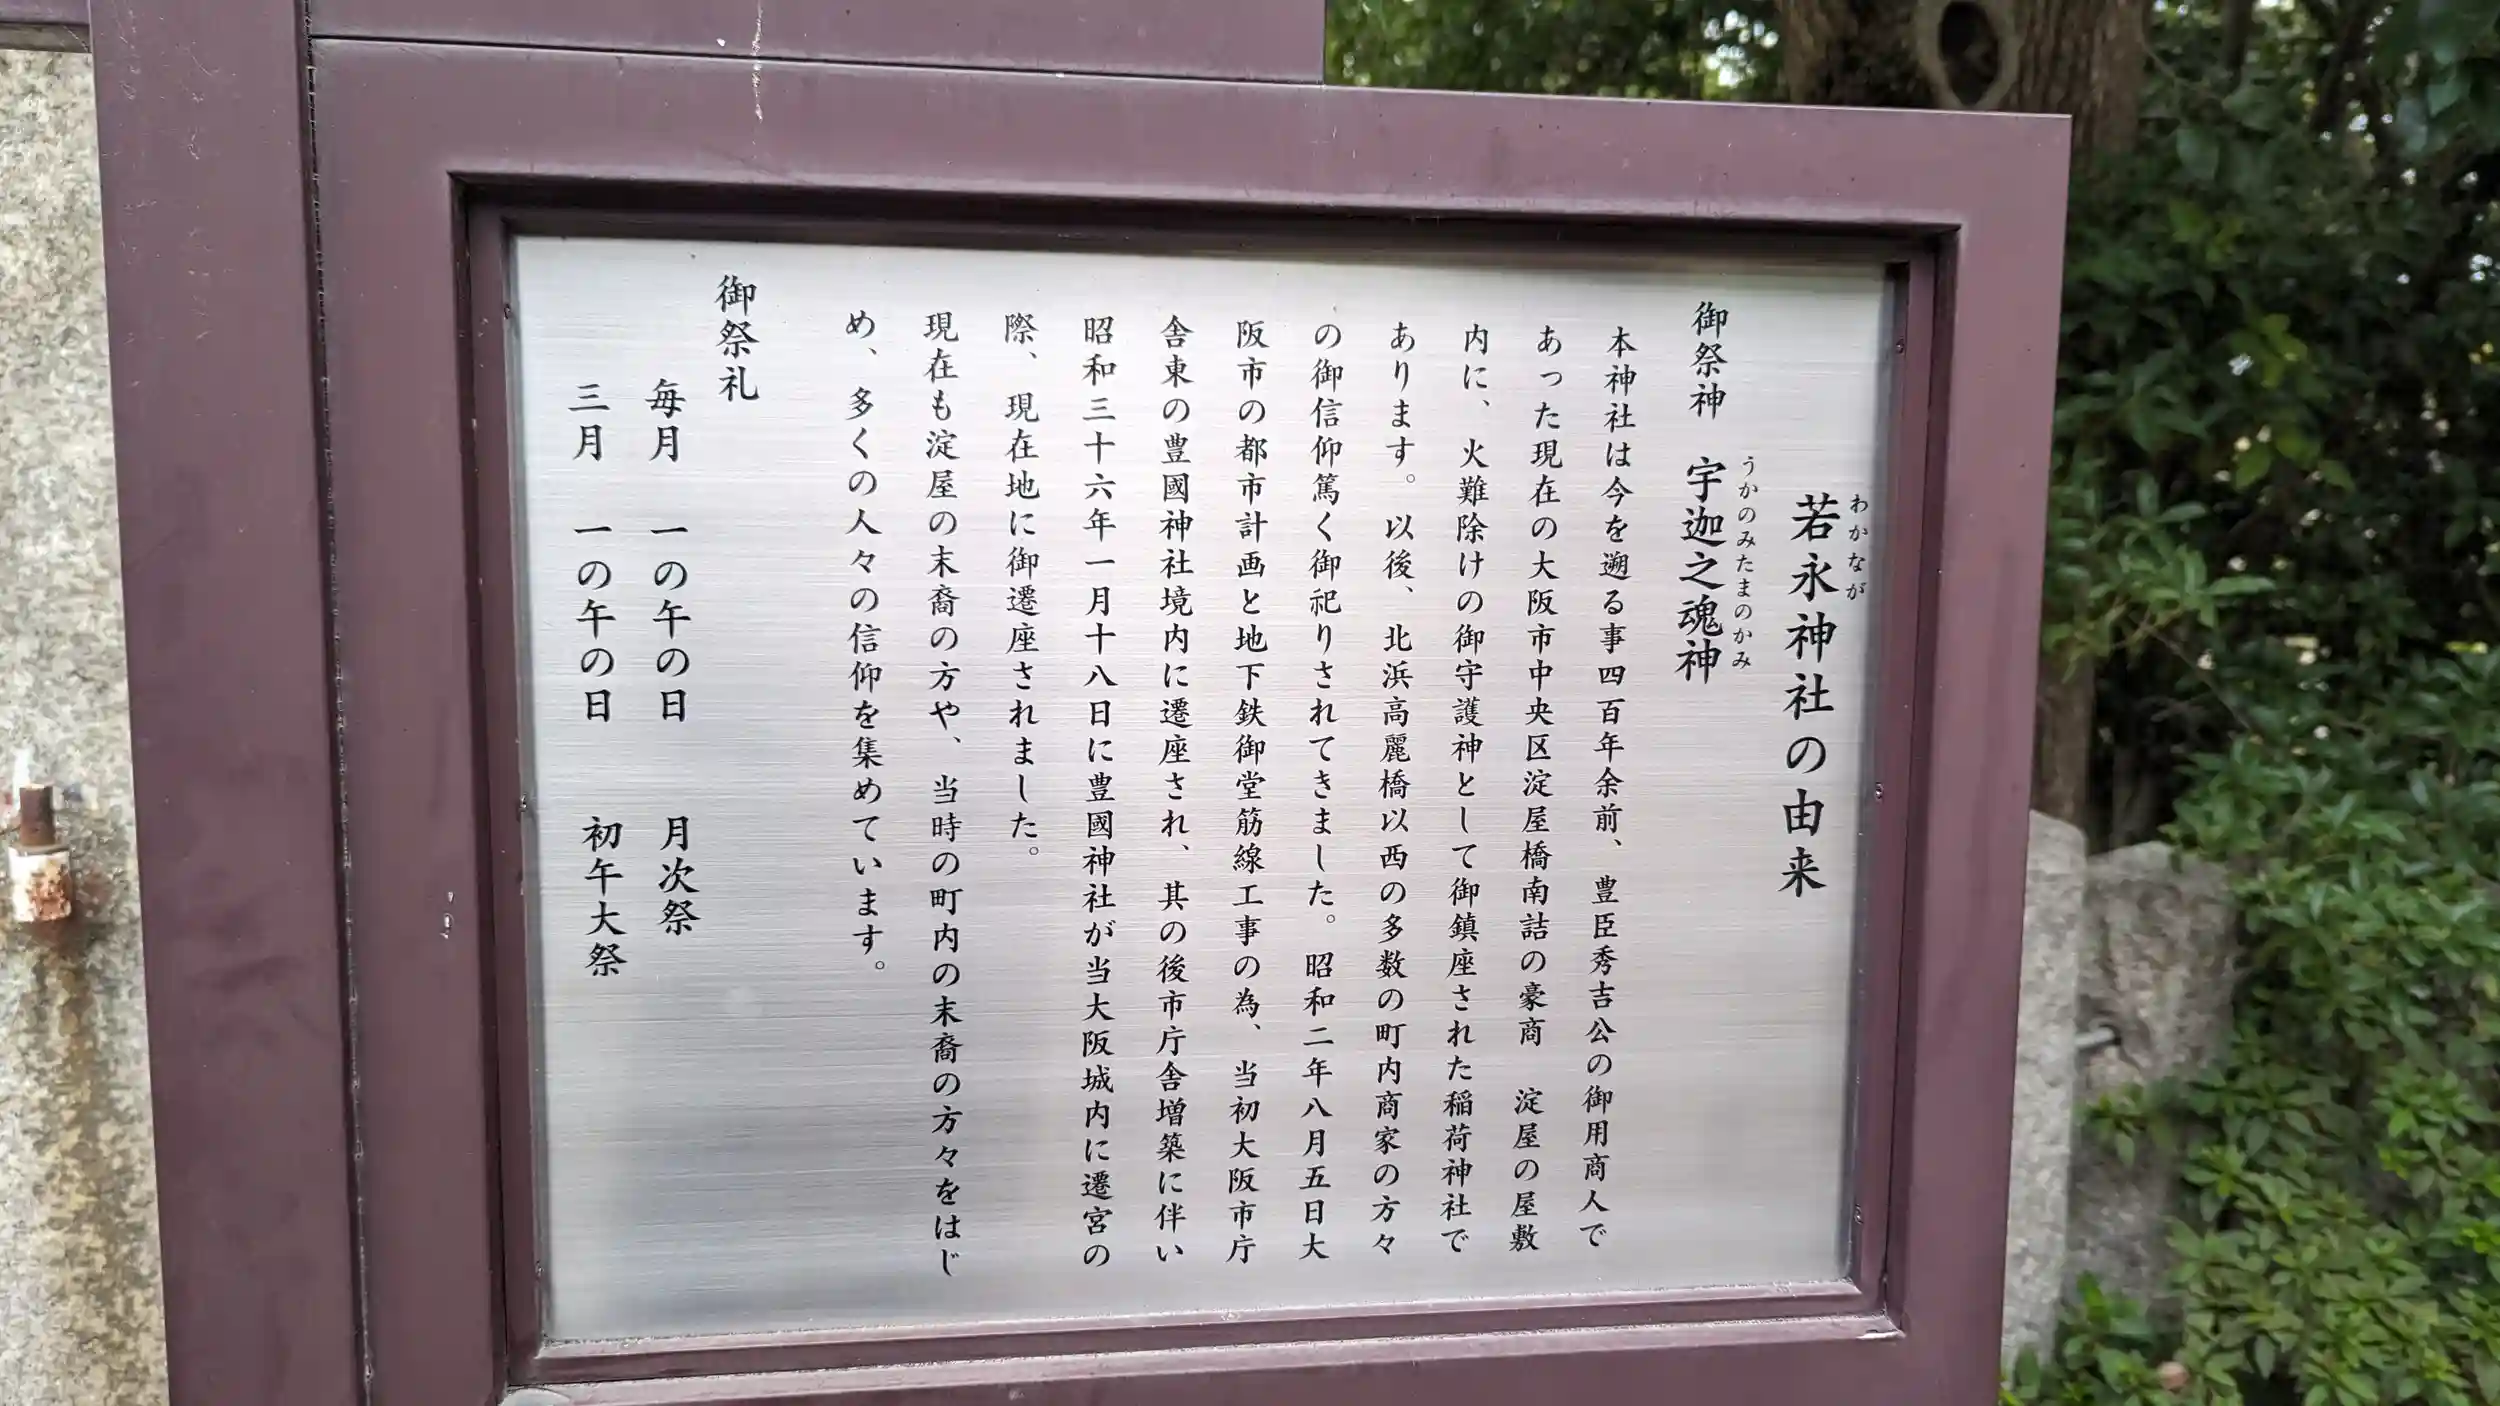 若永神社の由来
わかなが
御祭神　宇迦之魂神
うかのみたまのかみ
本神社は今を遡る事四百年余前、豊臣秀吉公の御用商人で
あった現在の大阪市中央区淀屋橋南詰の豪商　淀屋の屋敷
内に、火難除けの御守護神として御鎮座された稲荷神社で
あります。以後、北浜高麗橋以西の多数の町内商家の方々
の御信仰篤く御祀りされてきました。昭和二年八月五日大
阪市の都市計画と地下鉄御堂筋線工事の為、当初大阪市庁
舎東の豊國神社境内に遷座され、其の後市庁舎増築に伴い
昭和三十六年一月十八日に豊國神社が当大阪城内に遷宮の
際、現在地に御遷座されました。
現在も淀屋の末裔の方や、当時の町内の末裔の方々をはじ
め、多くの人々の信仰を集めています。
御祭礼
毎月　一の午の日　月次祭
三月　一の午の日　初午大祭